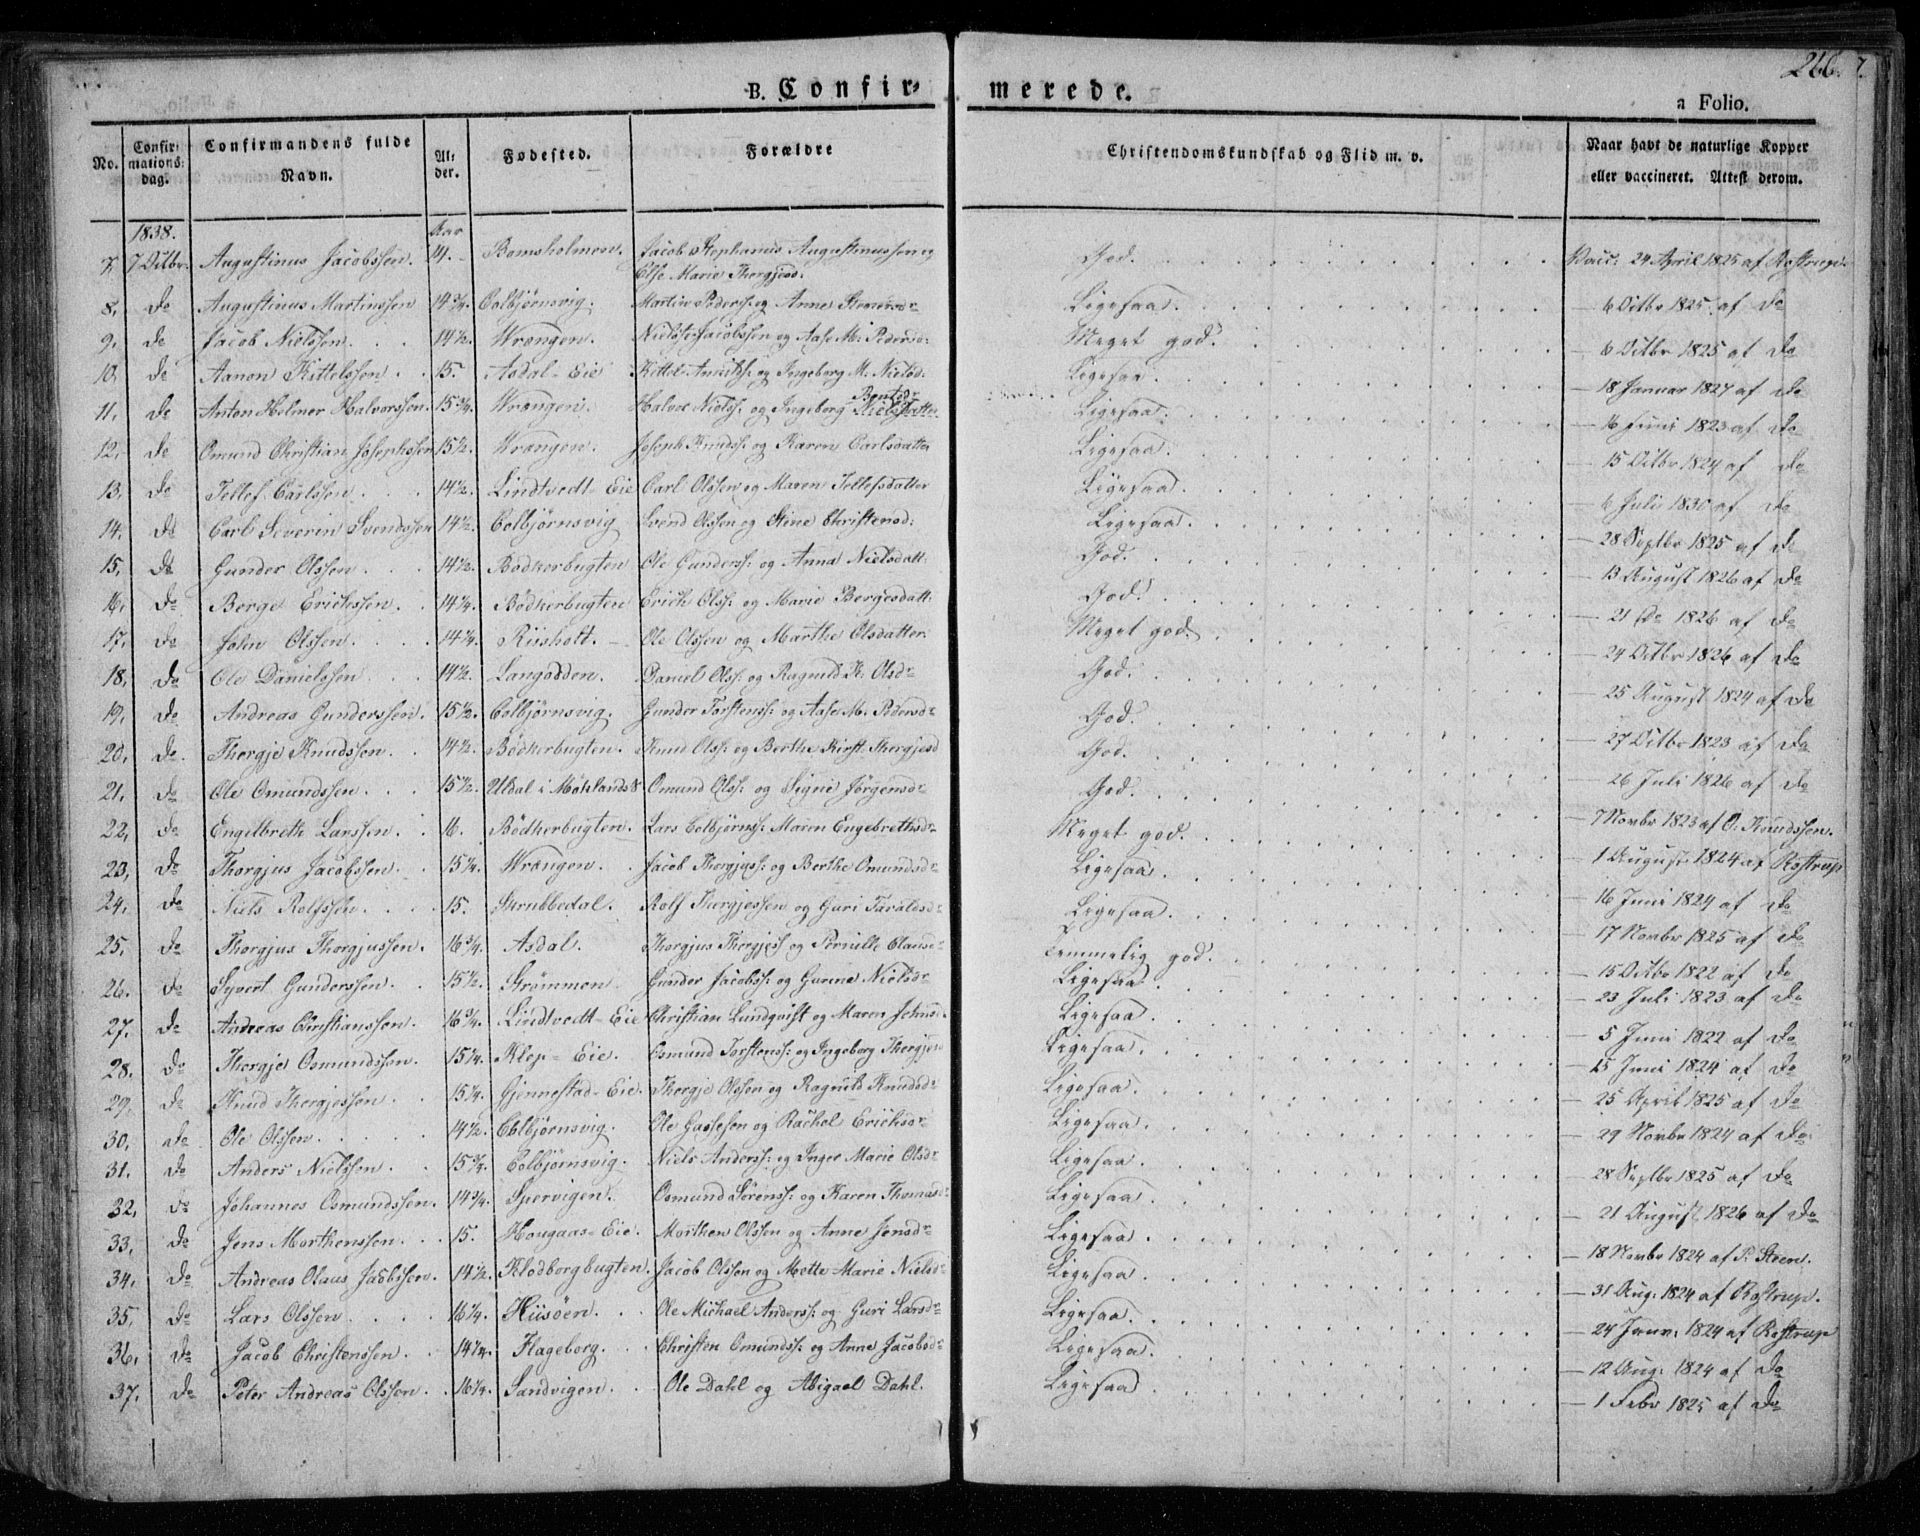 266.
B. Confir- merede.
a Folio.
No. Confirmations: dag. Confirmandens fulde Navn. Alder. Fødested. Forældre Christendomskundskab og Flid m. v. Naar havt de naturlige Kopper eller vaccineret. Attest derom.
1838. Aar
7. 7 Octbr. Augustinus Jacobssen. 14. Bomsholmen. Jacob Stephanus Augustinussen og God. Vacc: 24 April 1825 af Rostrup.
Else Marie Thergjesd:
8. do Augustinus Martinssen 14 3/4. Colbjørnsvig. Martin Peders: og Anne Ligesaa. — 6 Octbr 1825 af do
9. do Jacob Nielssen. 14 1/2. Wrangen. Niels Jacobssen og Aase M: Pedersd: Meget god. — 6 Octbr 1825 af do
10. do Aanon Kittelssen. 15. Asdal-Eie Kittel og Ingeborg M. Nielsd: Ligesaa. — 18 Januar 1827 af do
11. do Anton Helmer Halvorssen. 15 3/4. Wrangen. Halvor Nielss: og Ingeborg Nielsdatter Bentsdr Ligesaa. — 16 Juni 1823 af do
12. do Omund Christian Josephssen 15 1/2. Wrangen. Joseph Knuds: og Karen Carlsdatter Ligesaa. — 15 Octbr 1824 af do
13. do Tellef Carlssen. 14 1/2. Lindtvedt-Eie Carl Olssen og Maren Tellefsdatter Ligesaa. — 6 Juli 1830 af do
14. do Carl Severin Svendssen 14 1/2. Colbjørnsvig Svend Olssen og Stine Christensd: Ligesaa. — 28 Septbr 1825 af do
15. do Gunder Olssen. 14 1/2. Bödkerbugten Ole Gunderss: og Anna Nielsdatt: God. — 13 August 1826 af do
16. do Berge Erichssen. 14 1/4. Bödkerbugten Erich Olss: og Marie Bergesdatt: God. — 21 do 1826 af do
17. do John Olssen. 14 1/4. Riisholt. Ole Olssen og Marthe Olsdatter. Meget god. — 24 Octbr 1826 af do
18. do Ole Danielssen 14 1/2. Langodden. Daniel Olss: og Ragnild K. Olsdr God. — 25 August 1824 af do
19. do Andreas Gunderssen. 15 1/2. Colbjørnsvig. Gunder Torstenss: og Aase M. Pedersdr God. — 27 Octbr 1823 af do
20. do. Thergje Knudssen. 14 1/2. Bödkerbugten. Knud Olss: og Berthe Kirst. Thergjesd God. — 26 Juli 1826 af do
21. do Ole Omundssen. 15 1/2. Uldal i Moklands S Omund Olss: og Signe Jörgensdr God. — 7 Novbr 1823 af O. Knudssen.
22. do Engelbreth Larssen. 16. Bödkerbugten. Lars Colbjørnss: Maren Engebrethsdr Meget god. — 1 August 1824 af Rostrup
23. do Thorgjus Jacobssen. 15 1/4. Wrangen. Jacob Thorgjuss: og Berthe Omundsdr Ligesaa. — 16 Juni 1824 af do
24. do Niels Rolfssen. 15. Skrubbedal. Rolf Thergjessen og Guri Taraldsdr Ligesaa. — 17 Novbr 1825 af do
25. do Thorgjus Thorgjussen. 16 3/4. Asdal. Thorgjus Thorgjess: og Pernille Olausdr Temmelig god. — 15 Octbr 1822 af do
26. do Syvert Gunderssen. 15 1/2. Strömmen. Gunder Jacobss: og Gunna Nielsdr Ligesaa. — 23 Juli 1823 af do
27. do Andreas Christianssen. 16 3/4. Lindtvedt-Eie Christian Lundqvist og Maren Johnsd. Ligesaa. — 5 Juni 1822 af do
28. do Thergje Osmundssen. 15 1/4. Klep-Eie. Osmund Torstenss: og Ingeborg Thergjesd Ligesaa. — 25 Juni 1824 af do
29. do Knud Thergjessen. 15 1/4. Gjennestad-Eie. Thergje Olssen og Ragnild Knudsdr Ligesaa. — 25 April 1825 af do
30. do Ole Olssen. 14 1/2. Colbjørnsvig. Ole Gassesen og Rachel Erichsdr Ligesaa. — 29 Novbr 1824 af do.
31. do Anders Nielssen. 15 3/4. Colbjørnsvig. Niels Anderss: og Inger Marie Olsdr Ligesaa. — 28 Septbr 1825 af do
32. do Johannes Osmundssen. 14 3/4. Spervigen. Osmund Sörenss: og Karen Thomasdr Ligesaa. — 21 August 1826 af do
33. do Jens Morthenssen. 15. Hougaas-Eie. Morthen Olssen og Anne Jensdr Ligesaa. — 18 Novbr 1824 af P. Steen.
34. do Andreas Olaus Jacobssen. 14 1/2. Klodborgbugten. Jacob Olssen og Mette Marie Nielsdr Ligesaa. — 31 Aug: 1824 af Rostrup.
35. do Lars Olssen. 16 1/4. Hiisöen. Ole Michael Anderss: og Guri Larsdr Ligesaa. — 24 Janv: 1824 af Rostrup
36. do Jacob Christenssen. 14 1/4. Flageborg. Christen Omundss: og Anne Jacobsdr Ligesaa. — 12 Aug: 1824 af do
37. do Peter Andreas Olssen. 16 1/4. Sandvigen. Ole Dahl og Abigael Dahl. Ligesaa. — 1 Febr 1825 af do